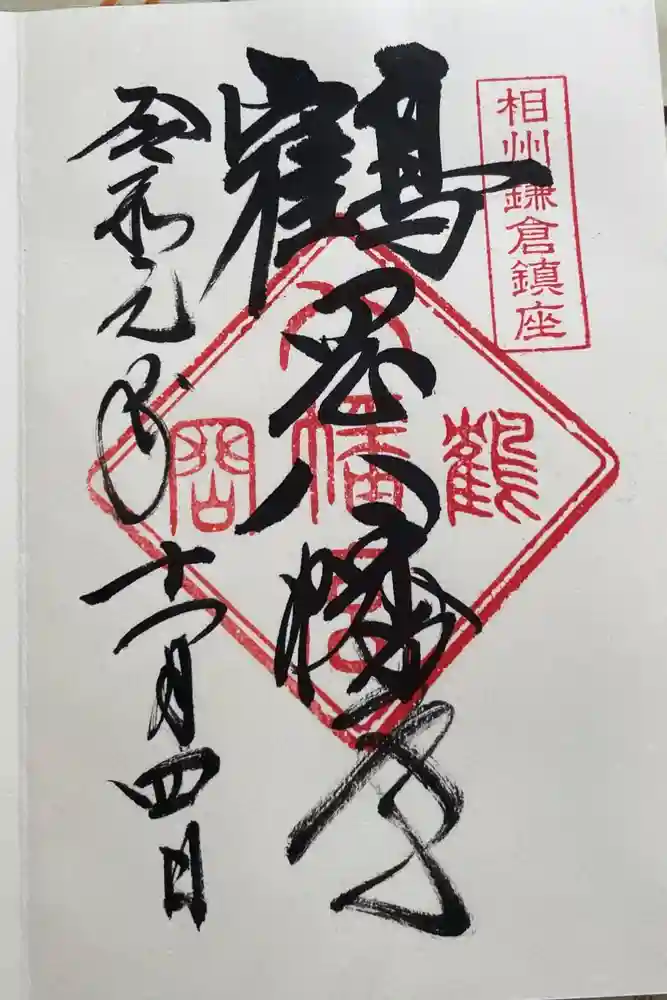 相州鎌倉鎮座
鶴岡八幡宮
鶴 八幡宮 岡
令和元年十一月四日